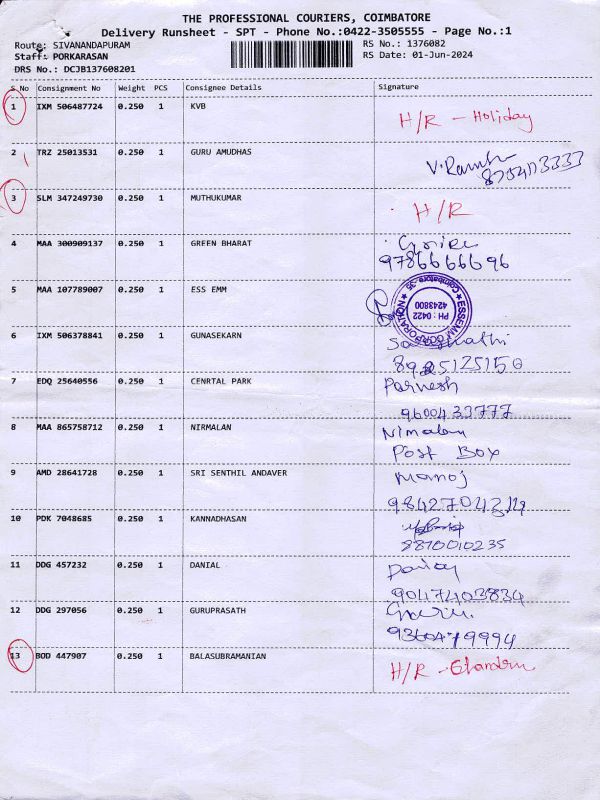 THE PROFESSIONAL COURIERS, COIMBATORE
Delivery Runsheet - SPT - Phone No.:0422-3505555 - Page No.:1
Route: SIVANANDAPURAM
RS No.: 1376082
Staff: PORKARASAN
RS Date: 01-Jun-2024
DRS No.: DCJB137608201
S No Consignment No Weight PCS Consignee Details Signature
1 IXM 506487724 0.250 1 KVB H/R - Holiday
2 TRZ 25013531 0.250 1 GURU AMUDHAS
3 SLM 347249730 0.250 1 MUTHUKUMAR H/R
4 MAA 300909137 0.250 1 GREEN BHARAT
9786666696
5 MAA 107789007 0.250 1 ESS EMM
ESSEMM CORPORATION
Coimbatore-35
PH : 0422
4243800
6 IXM 506378841 0.250 1 GUNASEKARN
7 EDQ 25640556 0.250 1 CENRTAL PARK Parnesh
9600433777
8 MAA 865758712 0.250 1 NIRMALAN Nimalan
Post Box
9 AMD 28641728 0.250 1 SRI SENTHIL ANDAVER Manoj
10 PDK 7048685 0.250 1 KANNADHASAN
8870010235
11 DDG 457232 0.250 1 DANIAL
12 DDG 297056 0.250 1 GURUPRASATH
9360479994
13 BOD 447907 0.250 1 BALASUBRAMANIAN H/R -